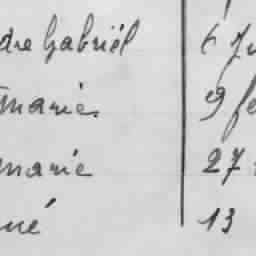 dre Gabriël 6
marie 9 fe
marie 27
né 13